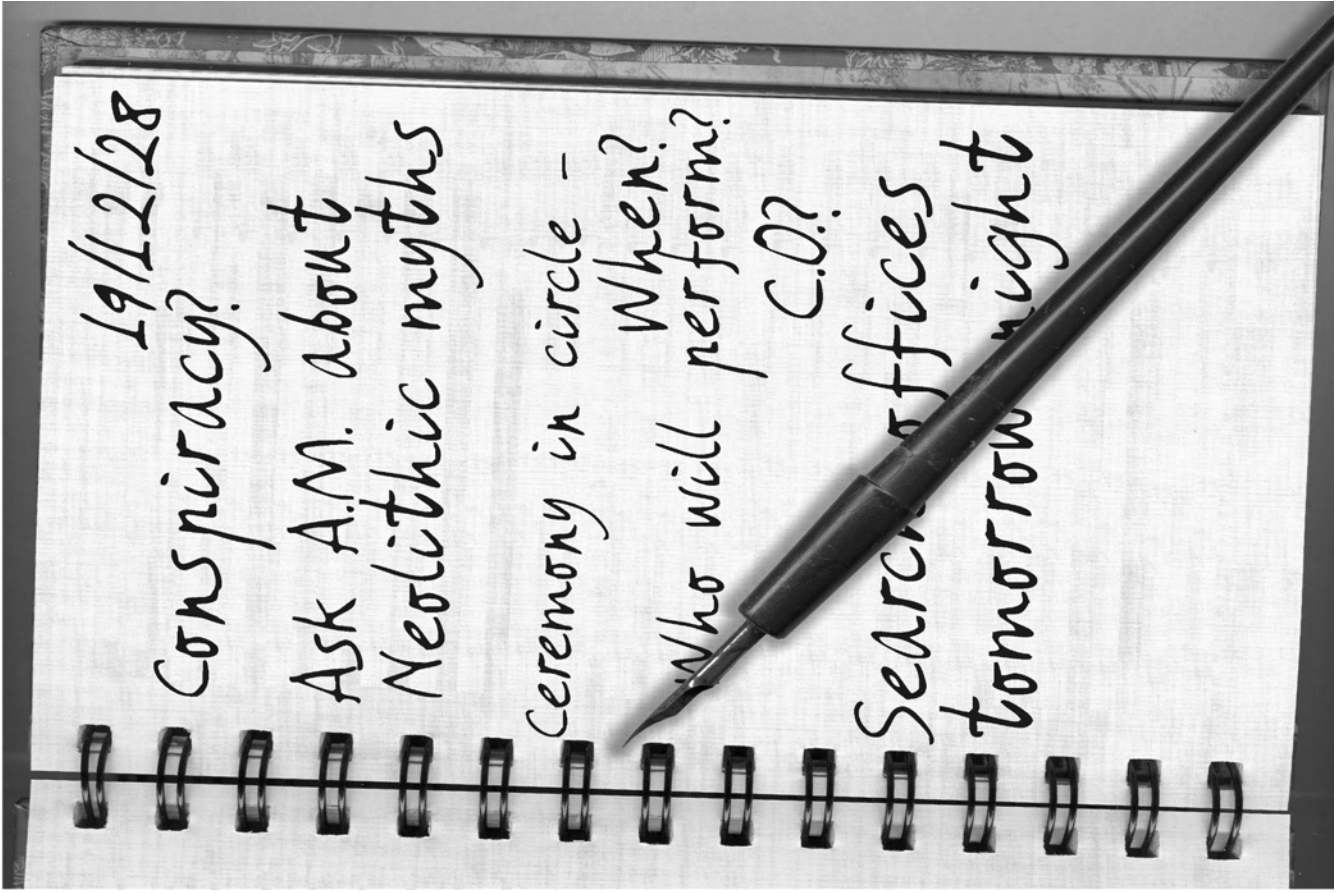 19/12/28
Conspiracy?
Ask A.M. about
Neolithic myths
Ceremony in circle -
When?
Who will perform?
C.O?
Search offices
tomorrow night